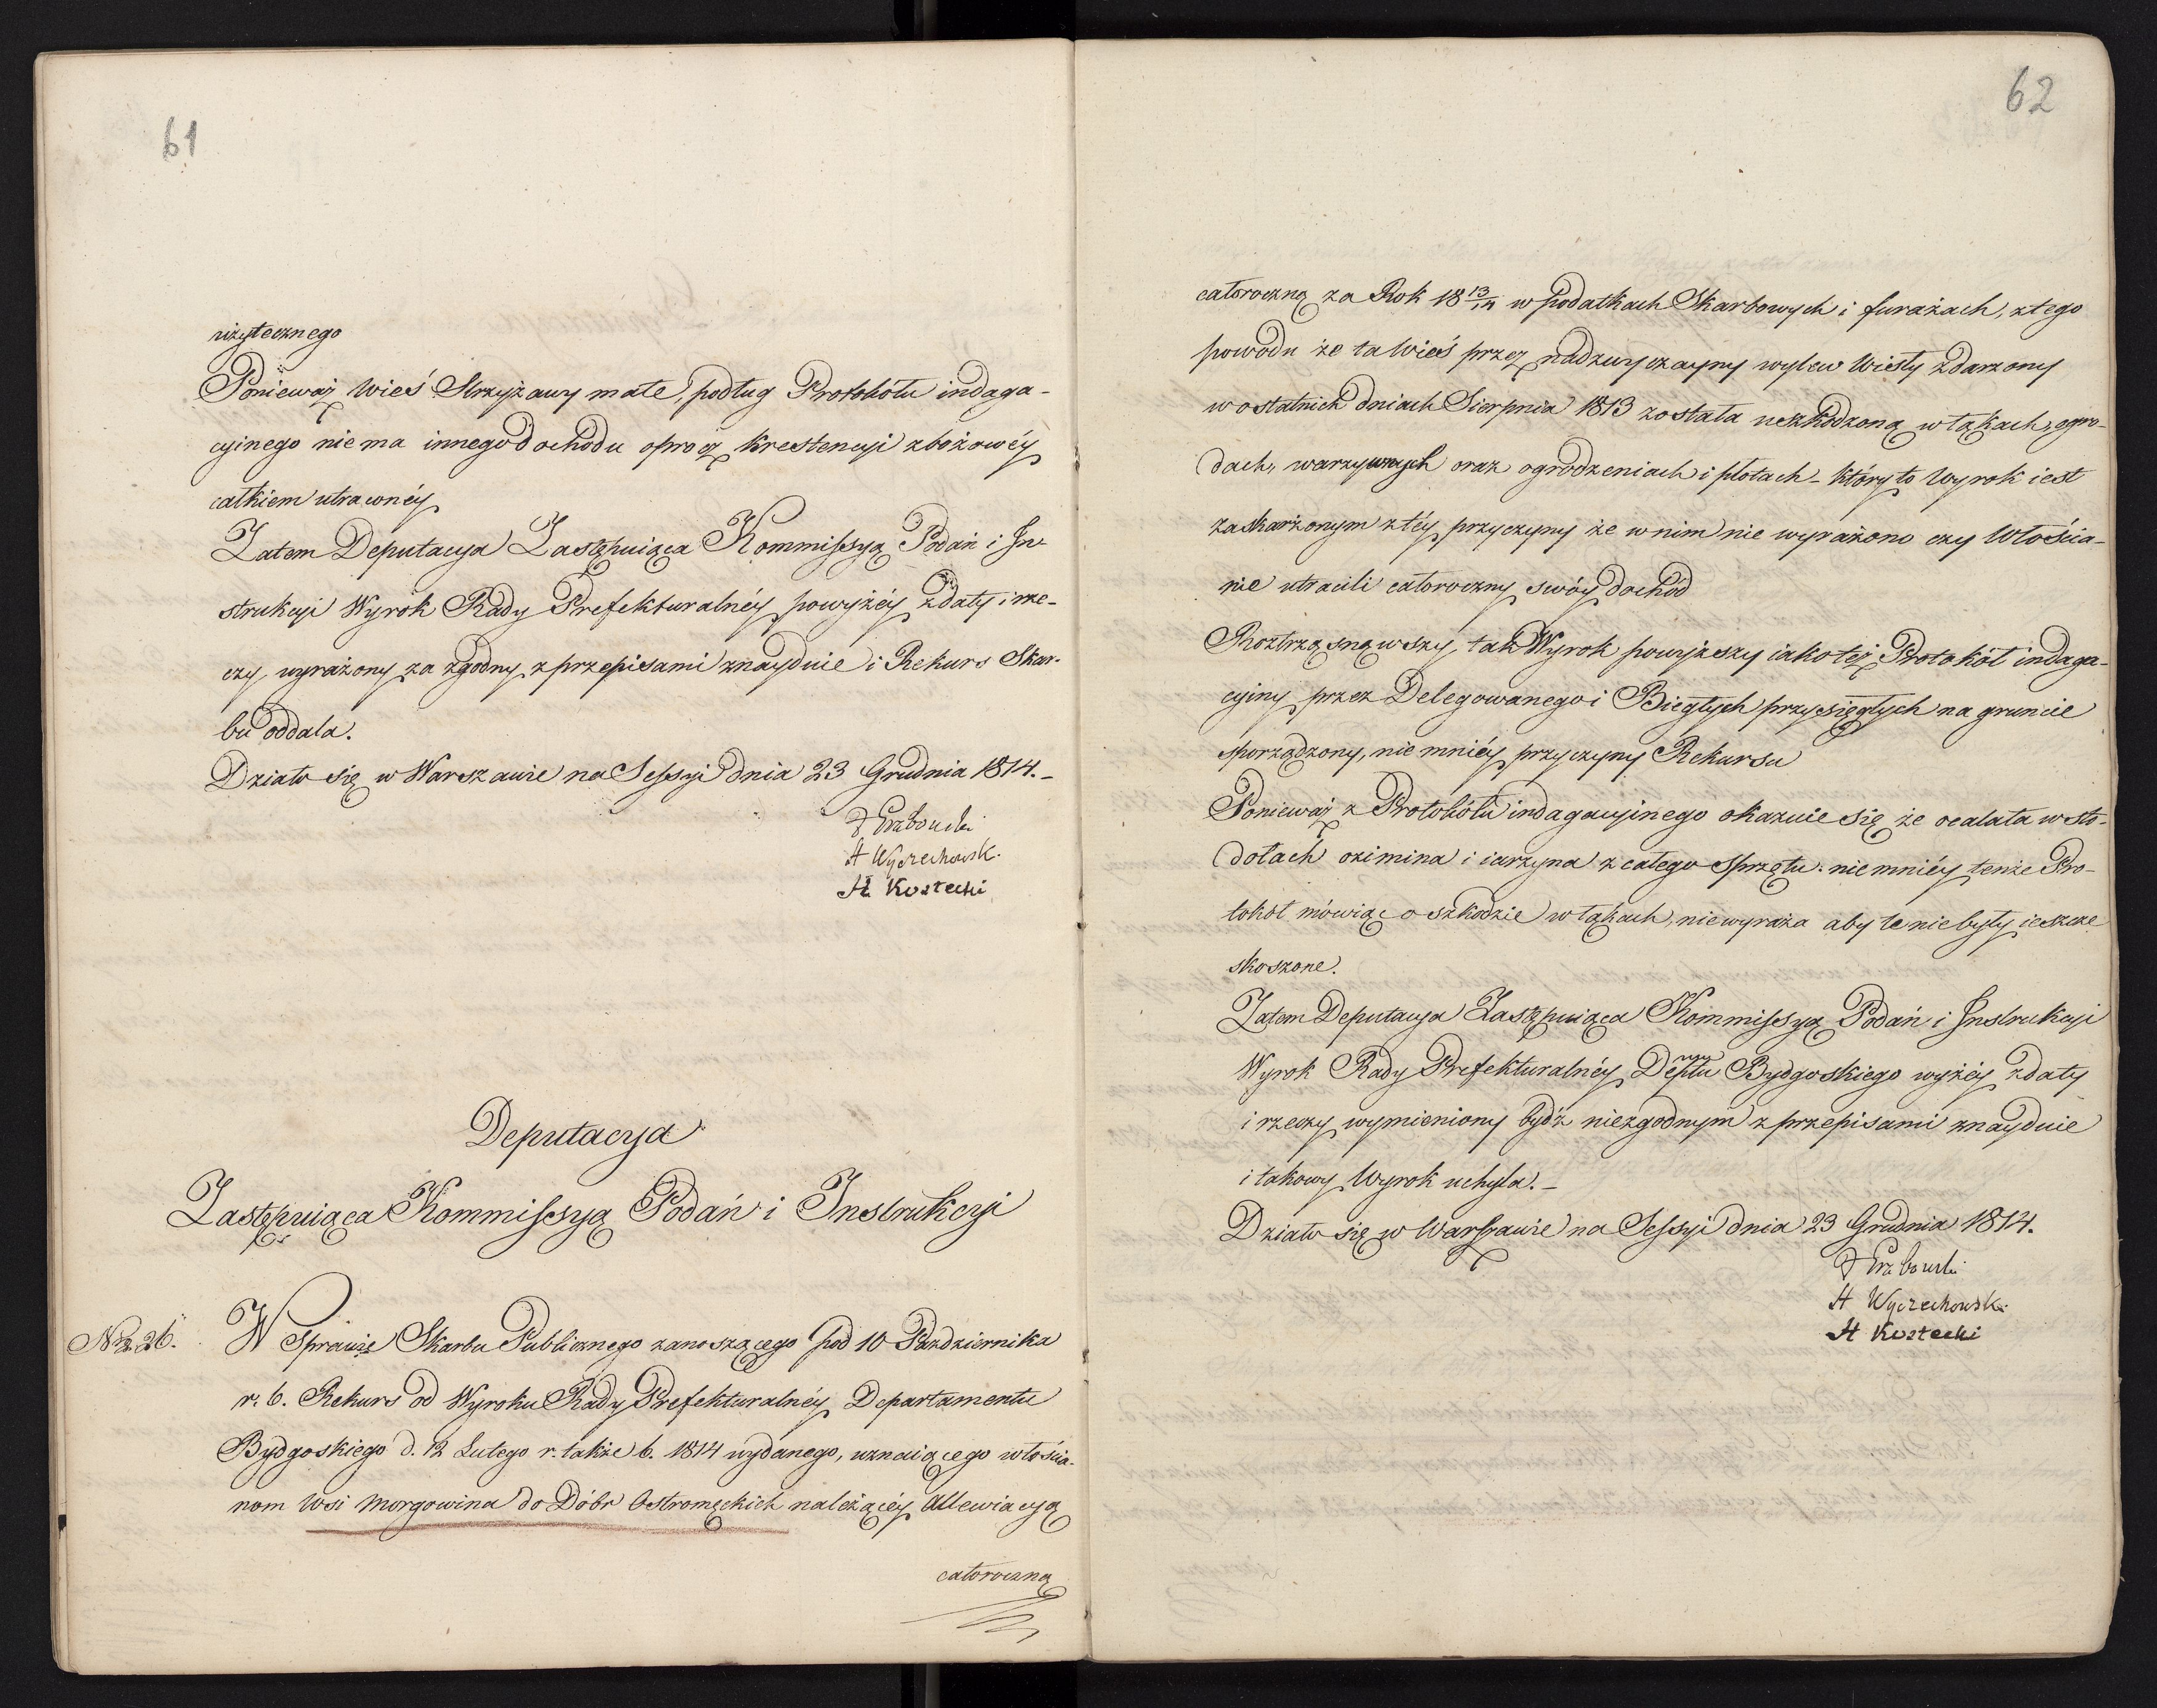 61
użytecznego
Ponieważ Wieś Strzyżawy małe, podług Protokółu indaga-
cyinego nie ma innego dochodu oprócz krestencyi zbożowéy
całkiem utraconéy
Zatem Deputacya Zastępuiąca Kommissyą Podań i In-
strukcyi Wyrok Rady Prefekturalnéy powyżéy z daty i rze-
czy wyrażony za zgodny z przepisami znayduie i Rekurs Skar-
bu oddala.
Działo się w Warszawie na Sessyi dnia 23 Grudnia 1814.-
Grabowski
A Wyczechowsk.
A Kozłecki
Deputacya
Zastępuiąca Kommissyą Podań i Instrukcyi
Nro 26.
W Sprawie Skarbu Publicznego zanoszącego pod 10 Października
r. b. Rekurs od Wyroku Rady Prefekturalnéy Departamentu
Bydgoskiego d. 12 Lutego r. także b. 1814 wydanego, uznaiącego włościa-
nom Wsi Morgowina do Dóbr Ostromęckich należącéy Allewiacyą
całoroczną
62
całoroczną za Rok 18 13/14 w podatkach Skarbowych i furażach, z tego
powodu że ta Wieś przez nadzwyczayny wylew Wisły zdarzony
w ostatnich dniach Sierpnia 1813 została uszkodzoną w łąkach, ogro-
dach, warzywnych oraz ogrodzeniach i płotach - który to Wyrok iest
zaskarżonym z téy przyczyny że w nim nie wyrażono czy Włościa-
nie utracili całoroczny swóy dochód
Roztrząsnąwszy tak Wyrok powyższy iako też Protokół indaga-
cyiny przez Delegowanego i Biegłych przysięgłych na gruncie
sporządzony, nie mniéy przyczyny Rekursu
Ponieważ z Protokółu indagacyinego okazuie się że ocalała w sto-
dołach ozimina i iarzyna z całego sprzętu: nie mniéy tenże Pro-
tokół mówiąc o szkodzie w łąkach, nie wyraża aby te nie były ieszcze
skoszone.
Zatem Deputacya Zastępuiąca Kommissyą Podań i Instrukcyi
Wyrok Rady Prefekturalnéy Deptu Bydgoskiego wyżéy z daty
i rzeczy wymieniony bydź niezgodnym z przepisami znayduie
i takowy Wyrok uchyla.-
Działo się w Warszawie na Sessyi dnia 23 Grudnia 1814.
Grabowski
A Wyczechowski
A Kozłecki